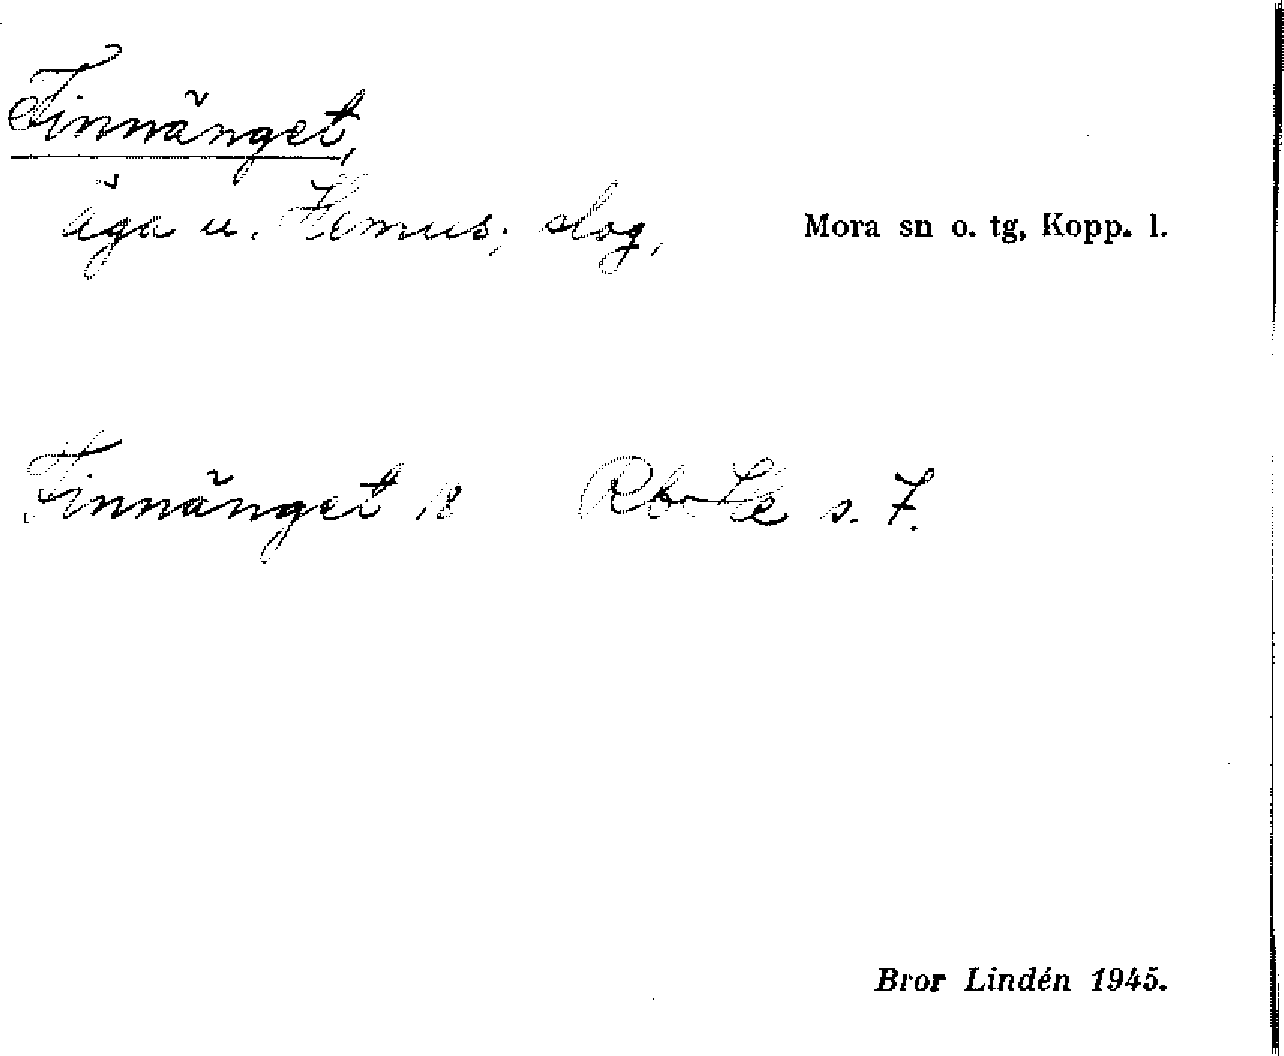 Finnänget,
äga u. Hemus, slog, Mora sn o. tg, Kopp. l.
Finnänget 18 s. 7.
Bror Lindén 1945.